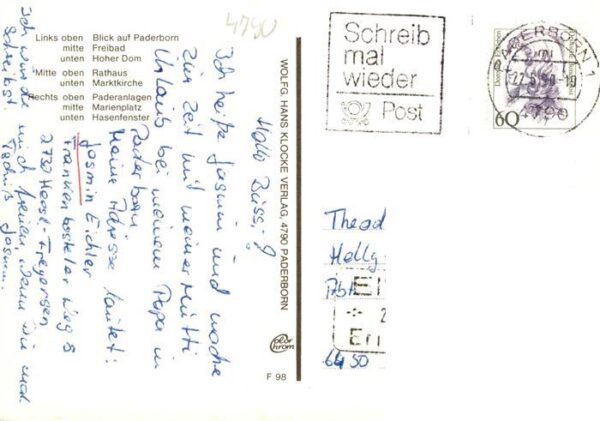 4790
Links oben Blick auf Paderborn
mitte Freibad
unten Hoher Dom
Mitte oben Rathaus
unten Marktkirche
Rechts oben Paderanlagen
mitte Marienplatz
unten Hasenfenster
Hallo
Ich heiße Jasmin und mache
zur Zeit mit meiner Mutti
Urlaub bei meinem Papa in
Paderborn
Meine Adresse lautet:
Jasmin Eichler
Frankenbosteler Weg 8
2730
Ich würde mich freuen, wenn Du mal
schreibst.
Tschüß Jasmin.
WOLFG. HANS KLOCKE VERLAG, 4790 PADERBORN
color chrom
F 98
Schreib
mal
wieder
Post
PADERBORN 1
4790
60
Theod
Hellg